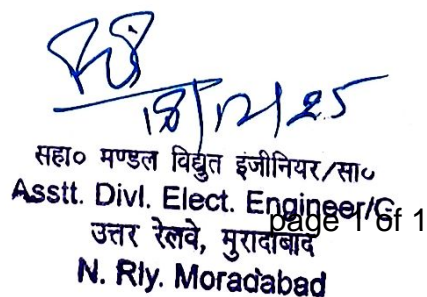 18/12/25
सहा० मण्डल विद्युत इंजीनियर/सा०
Asstt. Divl. Elect. Engineer/G
page 1 of 1
उत्तर रेलवे, मुरादाबाद
N. Rly. Moradabad